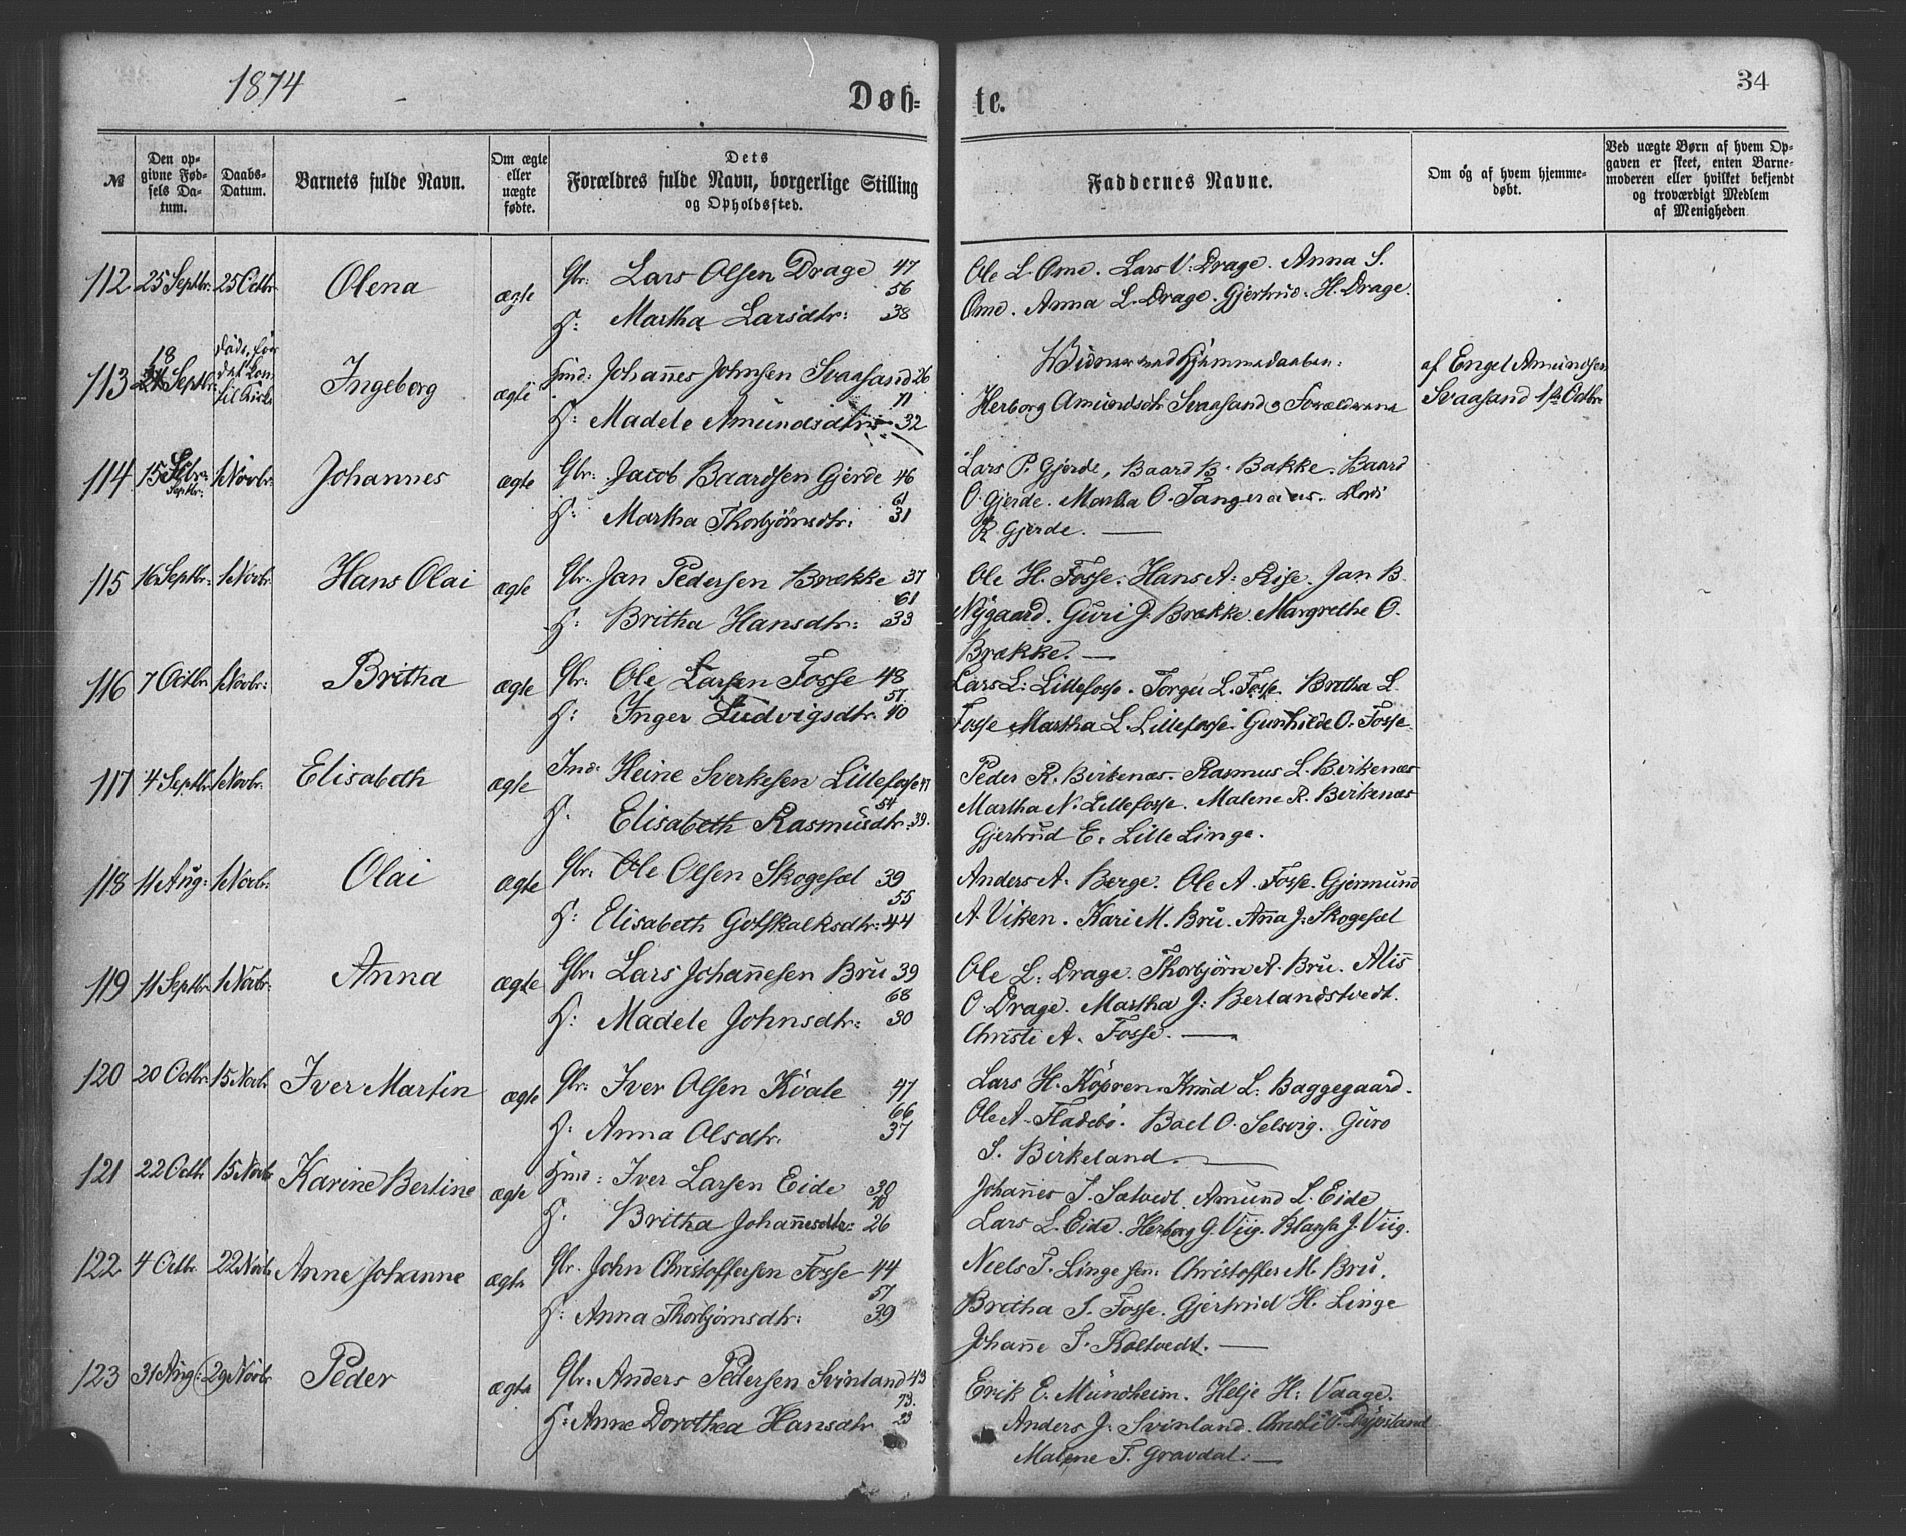 1874
Døb-
te.
34
№
Den op-
givne Fød-
sels Da-
tum.
Daabs-
Datum.
Barnets fulde Navn.
Om ægte
eller
uægte
fødte.
Dets
Forældres fulde Navn, borgerlige Stilling
og Opholdssted.
Faddernes Navne.
Om óg af hvem hjemme-
døbt.
Ved uægte Børn af hvem Op-
gaven er skeet, enten Barne-
moderen eller hvilket bekjendt
og troværdigt Medlem
af Menigheden
112 25 Septbr: 25 Octbr. Olena ægte Gbr: Lars Olsen Drage 47
56
H: Martha Larsdtr: 38
Ole L. Ome. Lars V. Drage. Anna S.
Ome. Anna L. Drage. Gjertrud H. Drage.
113 18 Septbr: døde før
det kom
til Kirke Ingeborg ægte Huusmd: Johañes Johnsen Svaasand 26
71
H: Madele Amundsdtr: 32
Vidner ved Hjemmedaaben:
Herborg Amundsdtr Svaasand og Forældrene
af Engel Amundsen
Svaasand 1ste Octbr.
114 15 Septbr: 1 Novbr. Johannes ægte Gbr: Jacob Baardsen Gjerde 46
61
H: Martha Thorbjörnsdtr: 31
Lars P. Gjerde, Baard B. Bakke. Baard
O. Gjerde. Martha O. Tangeraas.
R. Gjerde. —
115 16 Septbr: 1 Novbr. Hans Olai ægte Gbr. Jan Pedersen Brække 37
61
H: Britha Hansdtr: 33
Ole H. Fosse. Hans A. Rise. Jan B.
Nygaard. Guri J. Brække. Margrethe O.
Brække. —
116 7 Octbr. 1 Novbr: Britha ægte Gbr: Ole Larsen Fosse 48
57
H: Inger Ludvigsdtr. 40
Lars L. Lillefosse. Torger L. Fosse. Britha L.
Fosse Martha L. Lillefosse. Gunhilde O. Fosse.
117 4 Septbr. 1 Novbr. Elisabeth ægte Ind: Heine Sverkesen Lillefosse 47
54
H. Elisabeth Rasmusdtr: 39.
Peder R. Birkenæs. Rasmus L. Birkenæs
Martha N. Lillefosse. Malene R. Birkenæs
Gjertrud E. Lille Linge.
118 11 Aug: 1 Novbr. Olai ægte Gbr. Ole Olsen Skogesæl 39
55
H: Elisabeth Gotskalksdtr: 44
Anders A. Berge. Ole A. Fosse. Gjermund
A. Viken. Kari M. Bru. Aña J. Skogesæl
119 11 Septbr. 1 Novbr. Anna ægte Gbr. Lars Johañesen Bru 39
68
H: Madele Johnsdtr: 30
Ole L. Drage. Thorbjörn A. Bru. Alis
O. Drage. Martha J: Berlandstvedt.
Christi A. Fosse. —
120 20 Octbr. 15 Novbr. Iver Martin ægte Gbr: Iver Olsen Kvale 47
66
H. Anna Olsdtr. 37
Lars H. Köpren. Knud L. Baggegaard.
Ole A. Fladebö. Boel O. Selsvig. Guro
S. Birkeland. —
121 22 Octbr 15 Novbr Karine Bertine ægte Huusmd: Iver Larsen Eide 30
71
H. Britha Johañesdtr: 26
Johañes J. Sætvedt. Amund L. Eide
Lars L. Eide. Herborg G. Viig. J. Viig.
122 4 Octbr 22 Novbr Anne Johanne ægte Gbr. John Christoffersen Fosse 44
57
H: Anna Thorbjörnsdtr: 39
Neels T. Linge sen. Christoffer M. Bru.
Britha J. Fosse. Gjertrud H. Linge
Johañe J. Koltvedt. —
123 31 Aug: 29 Novbr Peder ægte Gbr. Anders Pedersen Svinland 43
73.
H: Anne Dorothea Hansdtr 23
Erik E. Mundheim. Helje H. Vaage.
Anders J. Svinland.
Malene T. Gravdal. —